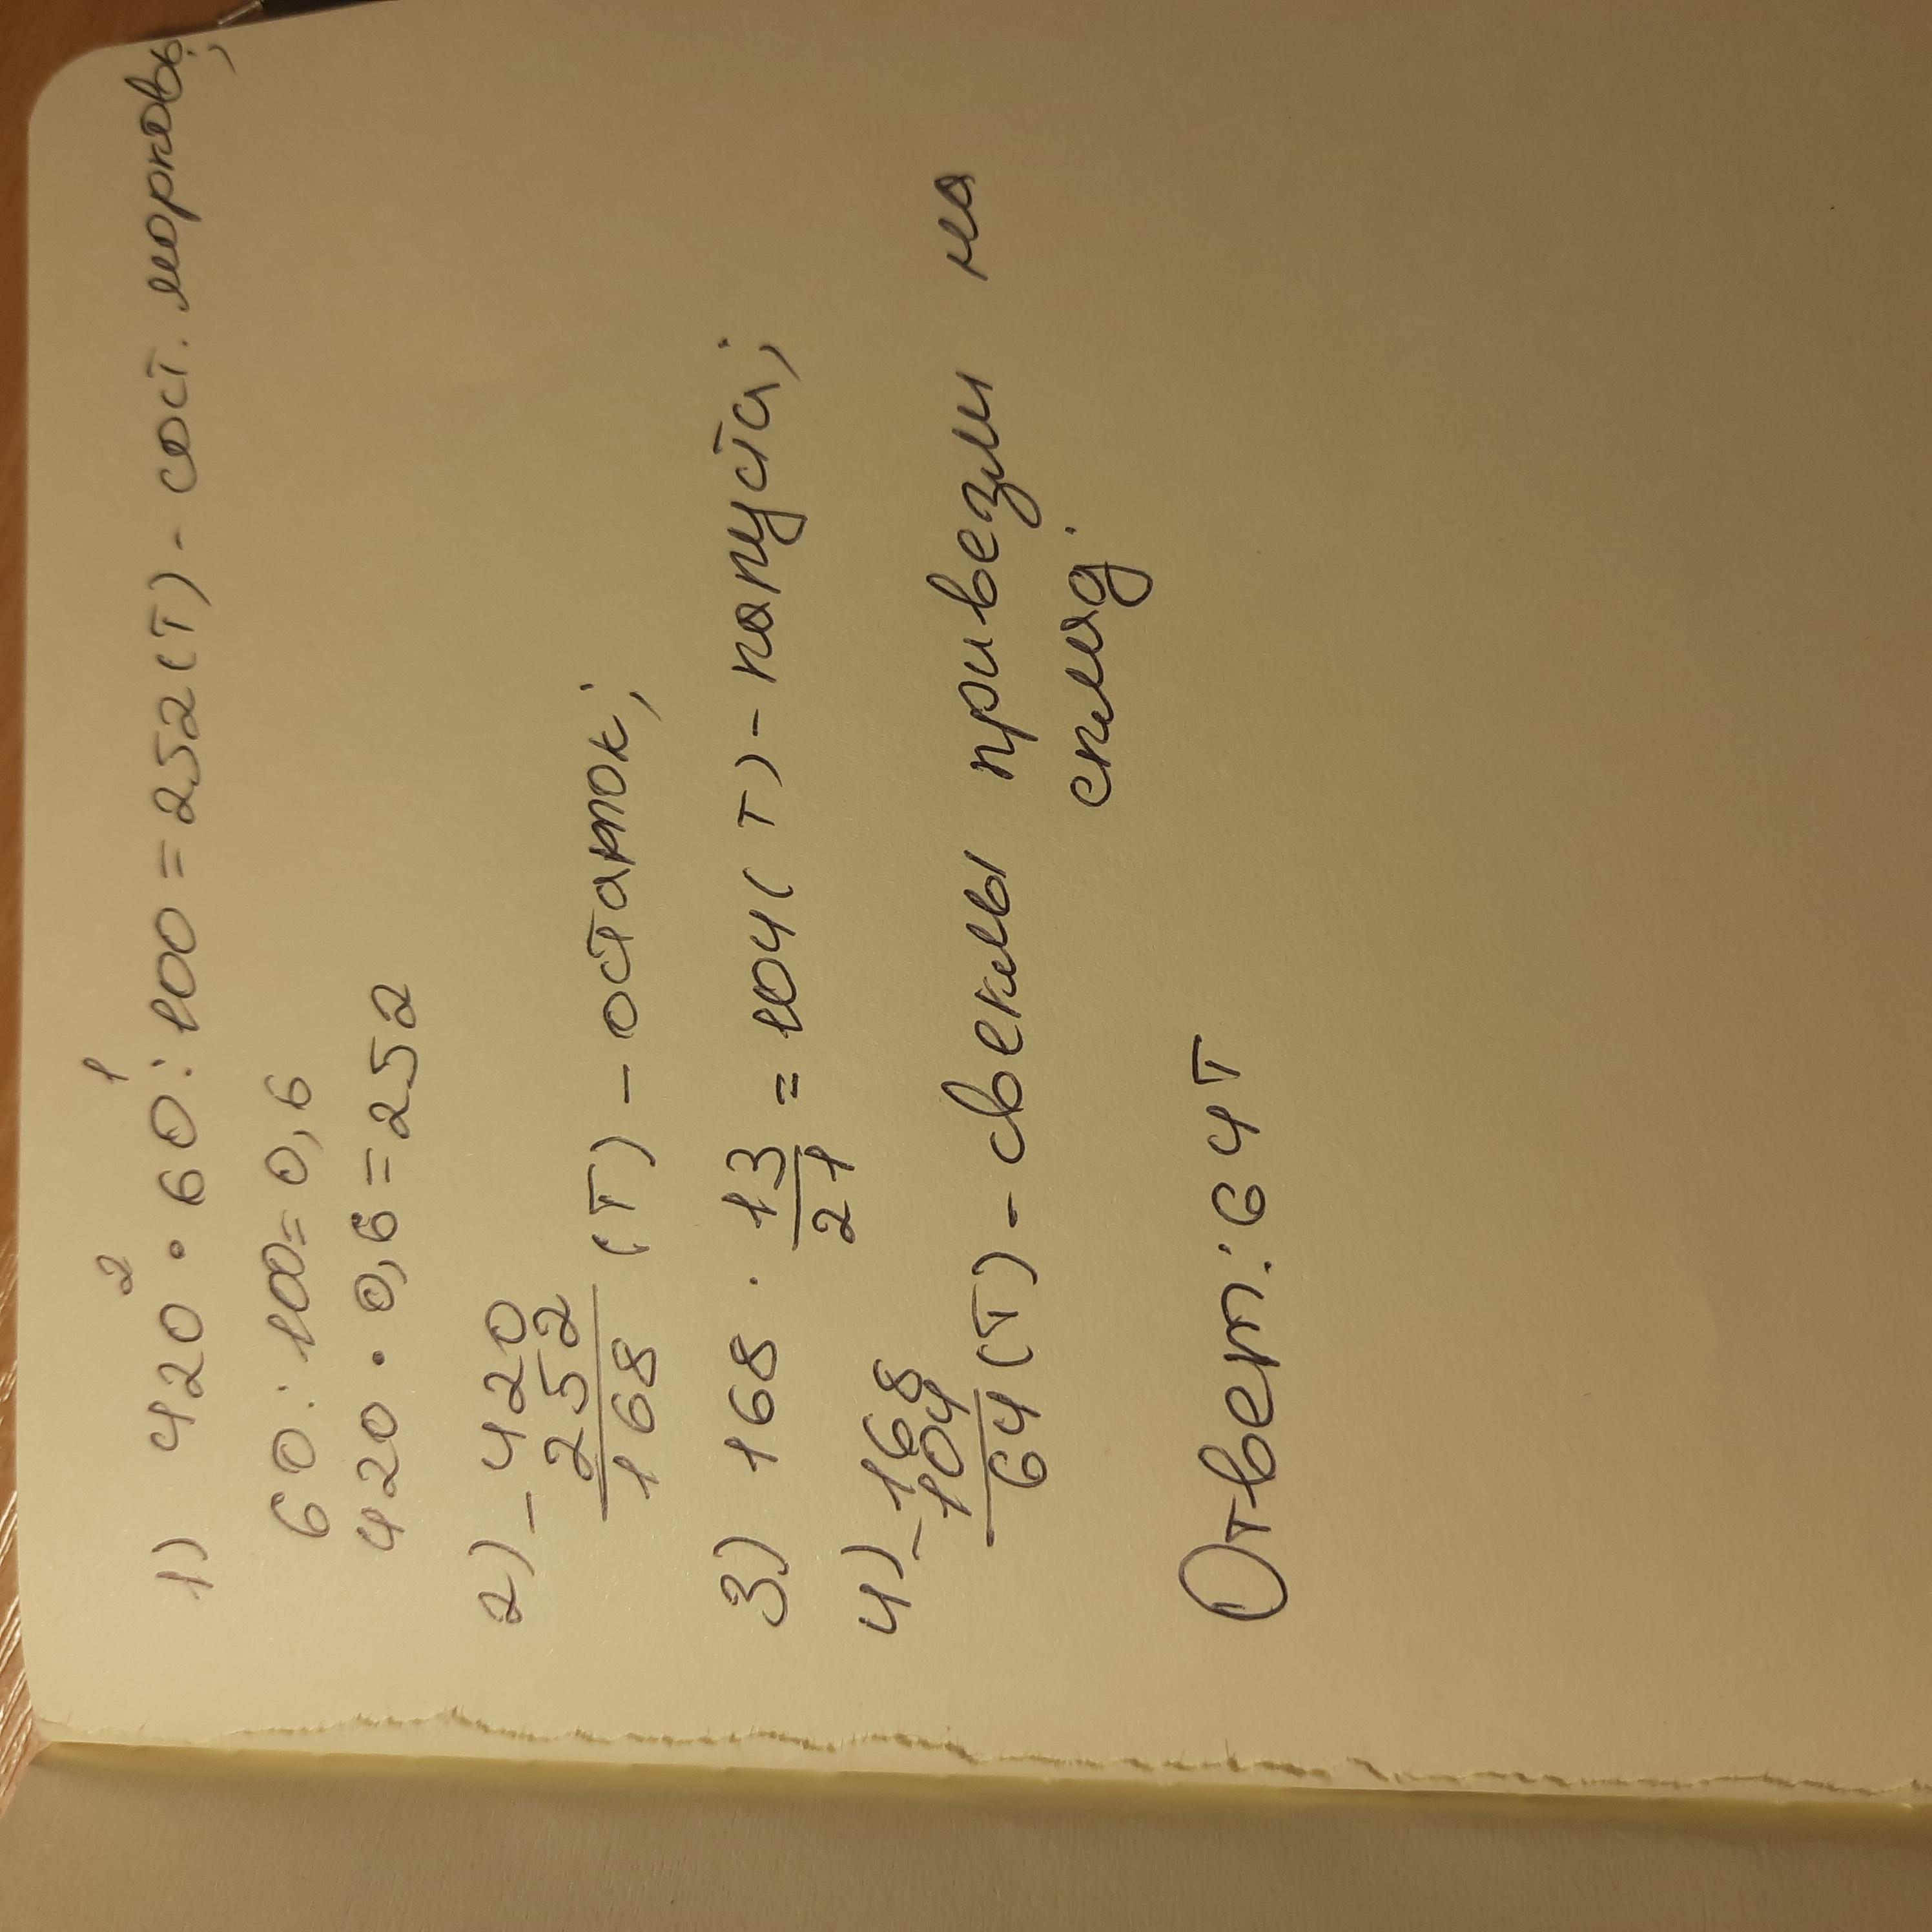 2 1
1) 420 • 60 : 100 = 252 (т) - сост. морковь;
60 : 100 = 0,6
420 • 0,6 = 252
2) - 420
252
168 (т) - остаток;
3) 168 · 13/21 = 104 (т) - капуста;
4) - 168
104
64 (т) - свеклы привезли на
склад.
Ответ: 64т